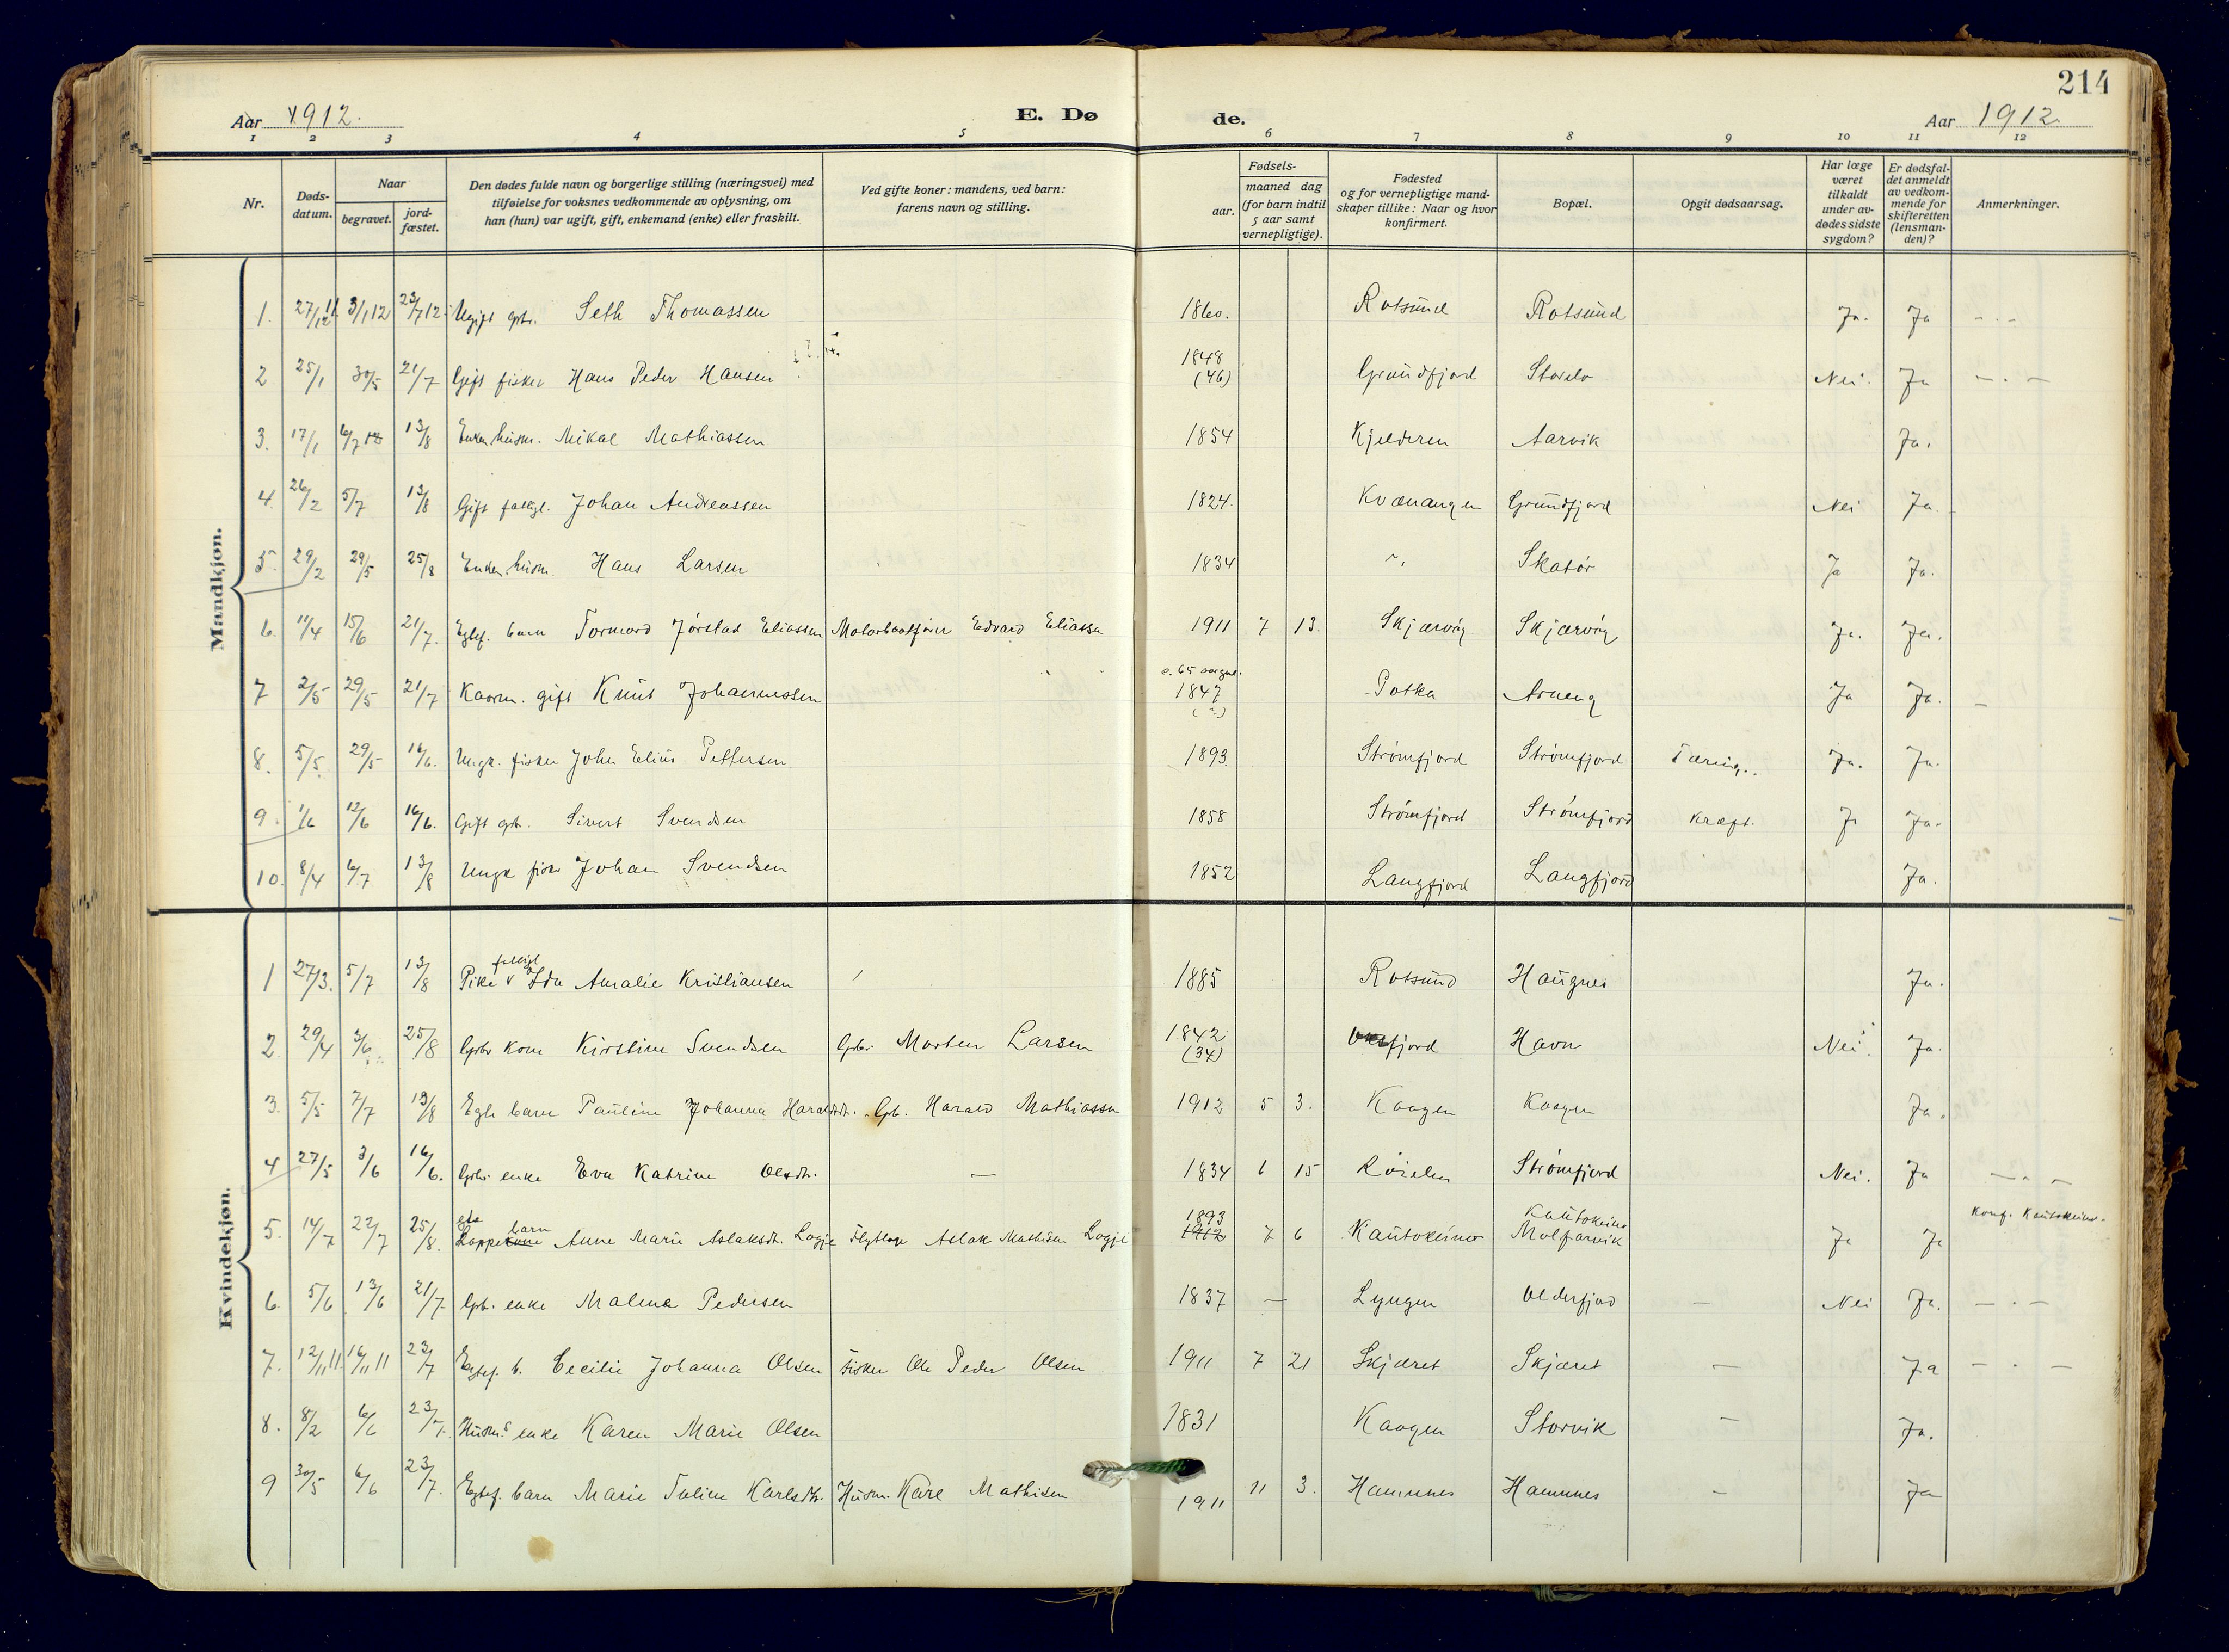 214
Aar 1912.
E. Døde.
Aar 1912
1 2 3 4 5 6 7 8 9 10 11 12
Nr.
Døds-
datum.
Naar
begravet.
jord-
fæstet.
Den dødes fulde navn og borgerlige stilling (næringsvei) med
tilføielse for voksnes vedkommende av oplysning, om
han (hun) var ugift, gift, enkemand (enke) eller fraskilt.
Ved gifte koner: mandens, ved barn:
farens navn og stilling.
Fødsels-
aar.
maaned dag
(for barn indtil
5 aar samt
vernepligtige).
Fødested
og for vernepligtige mand-
skaper tillike: Naar og hvor
konfirmert.
Bopæl.
Opgit dødsaarsag.
Har læge
været
tilkaldt
under av-
dødes sidste
sygdom?
Er dødsfal-
det anmeldt
av vedkom-
mende for
skifteretten
(lensman-
den)?
Anmerkninger.
Mandkjøn.
1. 27/12 11 3/1 12 23/7 12 Ugift gbr. Seth Thomassen 1860. Rotsund Rotsund Ja. Ja - . -
2 25/1 30/5 21/7 Gift fisker Hans Peder Hansen 1848 (46) Grundfjord Storelv Nei. Ja - . -
3. 17/1 6/7 12 13/8 Enkem. husm. Mikal Mathiassen 1854 Kjelderen Aarvik Ja.
4. 26/2 5/7 13/8 Gift fattigl. Johan Andreassen 1824. Kvænangen Grundfjord Nei Ja.
5. 29/2 29/5 25/8 Enkem. husm. Hans Larsen 1834 " Skatør Ja Ja.
6. 11/4 15/6 21/7. Egtef. barn Tormod Jørstad Eliassen Motorbaatfører Edvard Eliassen 1911 7 13. Skjærvøy Skjærvøy Ja. Ja.
7 2/5 29/5 21/7 Kaarm. gift Knut Johannessen c. 65 aar gml. 1847 (?) Potka Arnøng Ja Ja. -
8. 5/5. 29/5 16/6. Ungk. fisker John Elius Pettersen 1893. Strømfjord Strømfjord Tæring.. Ja. Ja.
9. 1/6 12/6 16/6. Gift gbr. Sivert Svendsen 1858 Strømfjord Strømfjord Kræft. Ja Ja.
10. 8/4 6/7 13/8 Ungk fisker Johan Svendsen 1852 Langfjord Langfjord Ja.
Kvindekjøn.
1 27/3. 5/7 13/8 Pike fattigl Ida Amalie Kristiansen 1885 Rotsund Haugnes Ja.
2. 29/4 3/6 25/8 Gbr kone Kirstine Svendsen Gbr. Morten Larsen 1842 (34) fjord Havn Nei. Ja.
3. 5/5 7/7 13/8 Egte barn Pauline Johanna Haraldsdt. Gb. Harald Mathiassen 1912 5 3. Kaagen Kaagen Ja.
4 27/5 3/6 16/6. Gbr. enke Eva Katrine Olsdtr. - 1834 1 15 Røielen Strømfjord Nei. Ja - . -
5. 14/7 22/7 25/8. gte Lappekone barn Anne Marie Aslaksdt. Logje Flytlap Aslak Mathisen Logje 1893 1912 7 6 Kautokeino Kautokeino Molfarvik Ja Ja Konf. Kautokeino.
6. 5/6 13/6 21/7 Gb. enke Malene Pedersen 1837 - Lyngen Olderfjord - Nei Ja. - . -
7. 12/11 11. 16/11 11 23/7 Egtef. b. Cecilie Johanna Olsen Fisker Ole Peder Olsen 1911 7 21 Skjæret Skjæret - Ja - . -
8. 8/2 6/6 23/7. Husm.s enke Karen Marie Olsen 1831 Kaagen Storvik - Ja.
9 30/5 6/6 23/7. Egtef. barn Marie Juline Karlsdtr. Husm. Karl Mathisen 1911 11 3. Hamnnes Hamnnes - Ja